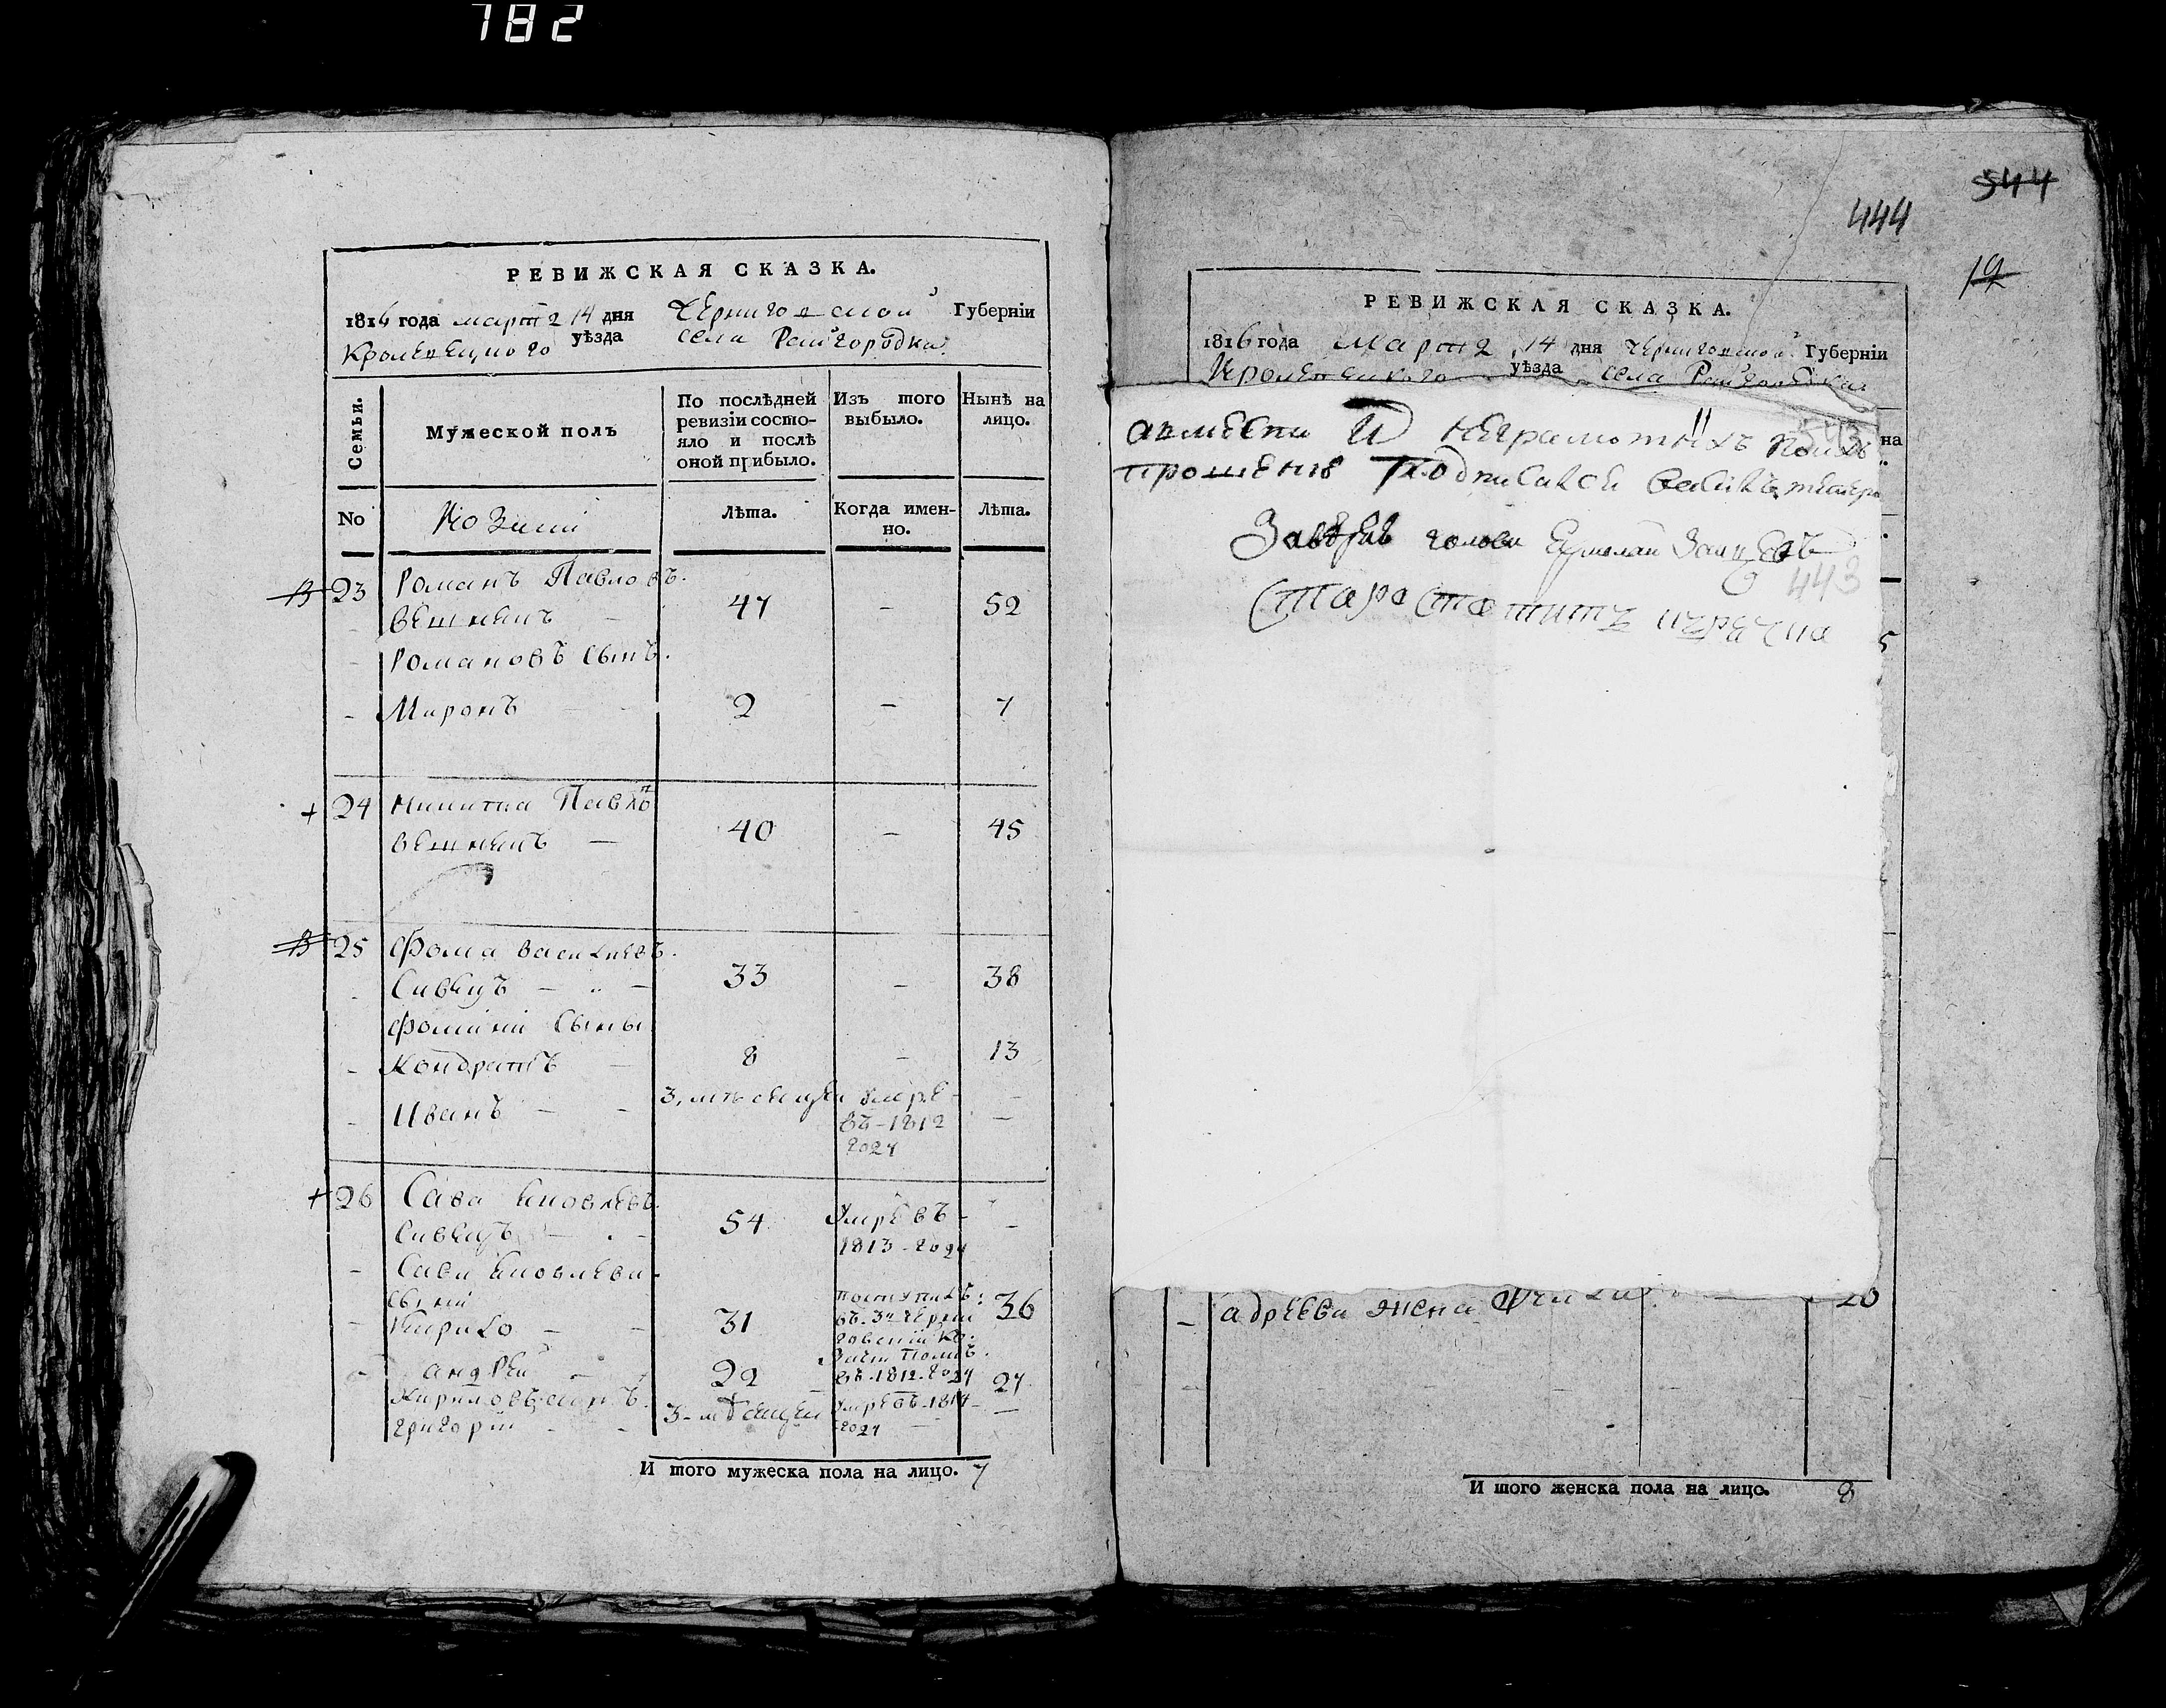 782
РЕВИЖСКАЯ СКАЗКА.
1816 года марта 14 дня Черниговской Губерніи
Кролевецкого уѣзда села Райгородка
Семьи.
Мужеской полъ
По послѣдней ревизіи состо-
яло и послѣ
оной прибыло.
Изъ того
выбыло.
Нынѣ на
лицо.
No
Козаки
Лѣта.
Когда имен-
но.
Лѣта.
23 Романъ Павловъ.
47 – 52
Романовъ сынъ.
Миронъ 2 – 7
24 Никита Павлов
40 – 45
25 Фома Васильевъ.
Сивецъ 33 – 38
Фомины сыны
Кондратъ 8 – 13
Иванъ 3, месецей умре
въ 1812
году
26 Сава Яковлевъ.
Сивецъ 54 Умре въ
1813 году
Сави Яковлева
сыни
Кирило 31 поступилъ 36
въ 3й Черни
говский ко
зачи полкъ
Андрей 22 въ 1812 году 27
Кириловъ сынъ
Григорій 3 месецей Умре въ 1814
году
И того мужеска пола на лицо. 7
544
444
19
РЕВИЖСКАЯ СКАЗКА.
1816 года Марта 14 дня Черниговской Губерніи
Кролевецкого уѣзда села Райгородка
на
неграмотныхъ
прошению подписался
голова Ермолай
443
5
Андреева жена 20
И того женска пола на лицо. 8